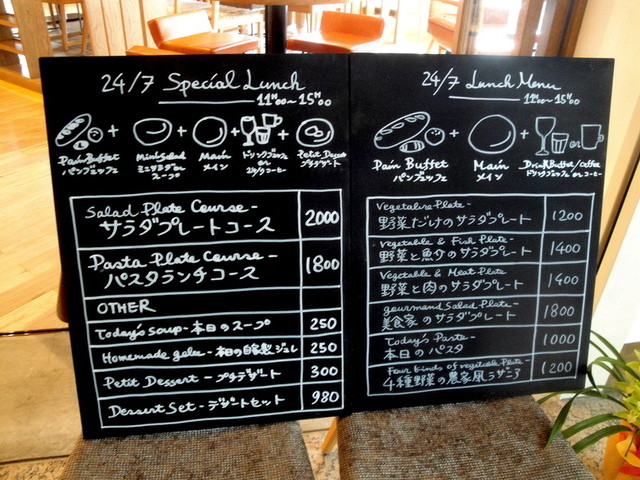 24/7 Special Lunch
11:00~15:00
Pain Buffet
パンブッフェ
+
Mini Salad or
ミニサラダ or
スープ
+
Main
メイン
+
ドリンクブッフェ
or
24/7コーヒー
+
Petit Dessert
プチデザート
Salad Plate Course-
サラダプレートコース
2000
Pasta Plate Course-
パスタランチコース
1800
OTHER
Today's Soup-本日のスープ
250
Homemade gelee-本日の自家製ジュレ
250
Petit Dessert-プチデザート
300
Dessert Set-デザートセット
980
24/7 Lunch Menu
11:00~15:00
Pain Buffet
パンブッフェ
+
Main
メイン
+
or
Drink Buffet/coffee
ドリンクブッフェ or コーヒー
Vegetable Plate-
野菜だけのサラダプレート
1200
Vegetable & Fish Plate-
野菜と魚介のサラダプレート
1400
Vegetable & Meat Plate-
野菜と肉のサラダプレート
1400
gourmand Salad Plate-
美食家のサラダプレート
1800
Today's Pasta-
本日のパスタ
1000
Four kinds of vegetable Plate-
4種野菜の農家風ラザニア
1200